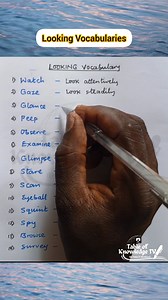 Looking Vocabularies
LOOKING Vocabulary
1) Watch - Look attentively
2) Gaze - Look steadily
3) Glance -
4) Peep -
5) Observe -
6) Examine
7) Glimpse
8) Stare
9) Scan
10) Eyeball
11) Squint
12) Spy
13) Browse
14) Survey -
Table of
Knowledge TV